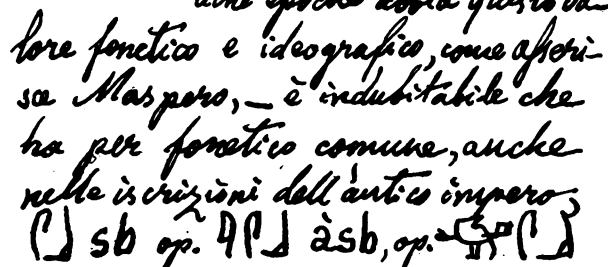 lore fonetico e ideografico, come asseri-
sce Maspero, — è indubitabile che
ha per fonetico comune, anche
nelle iscrizioni dell'antico impero,
𓋴𓃀 sb op. 𓇋𓋴𓃀 àsb, op. 𓋴𓃀